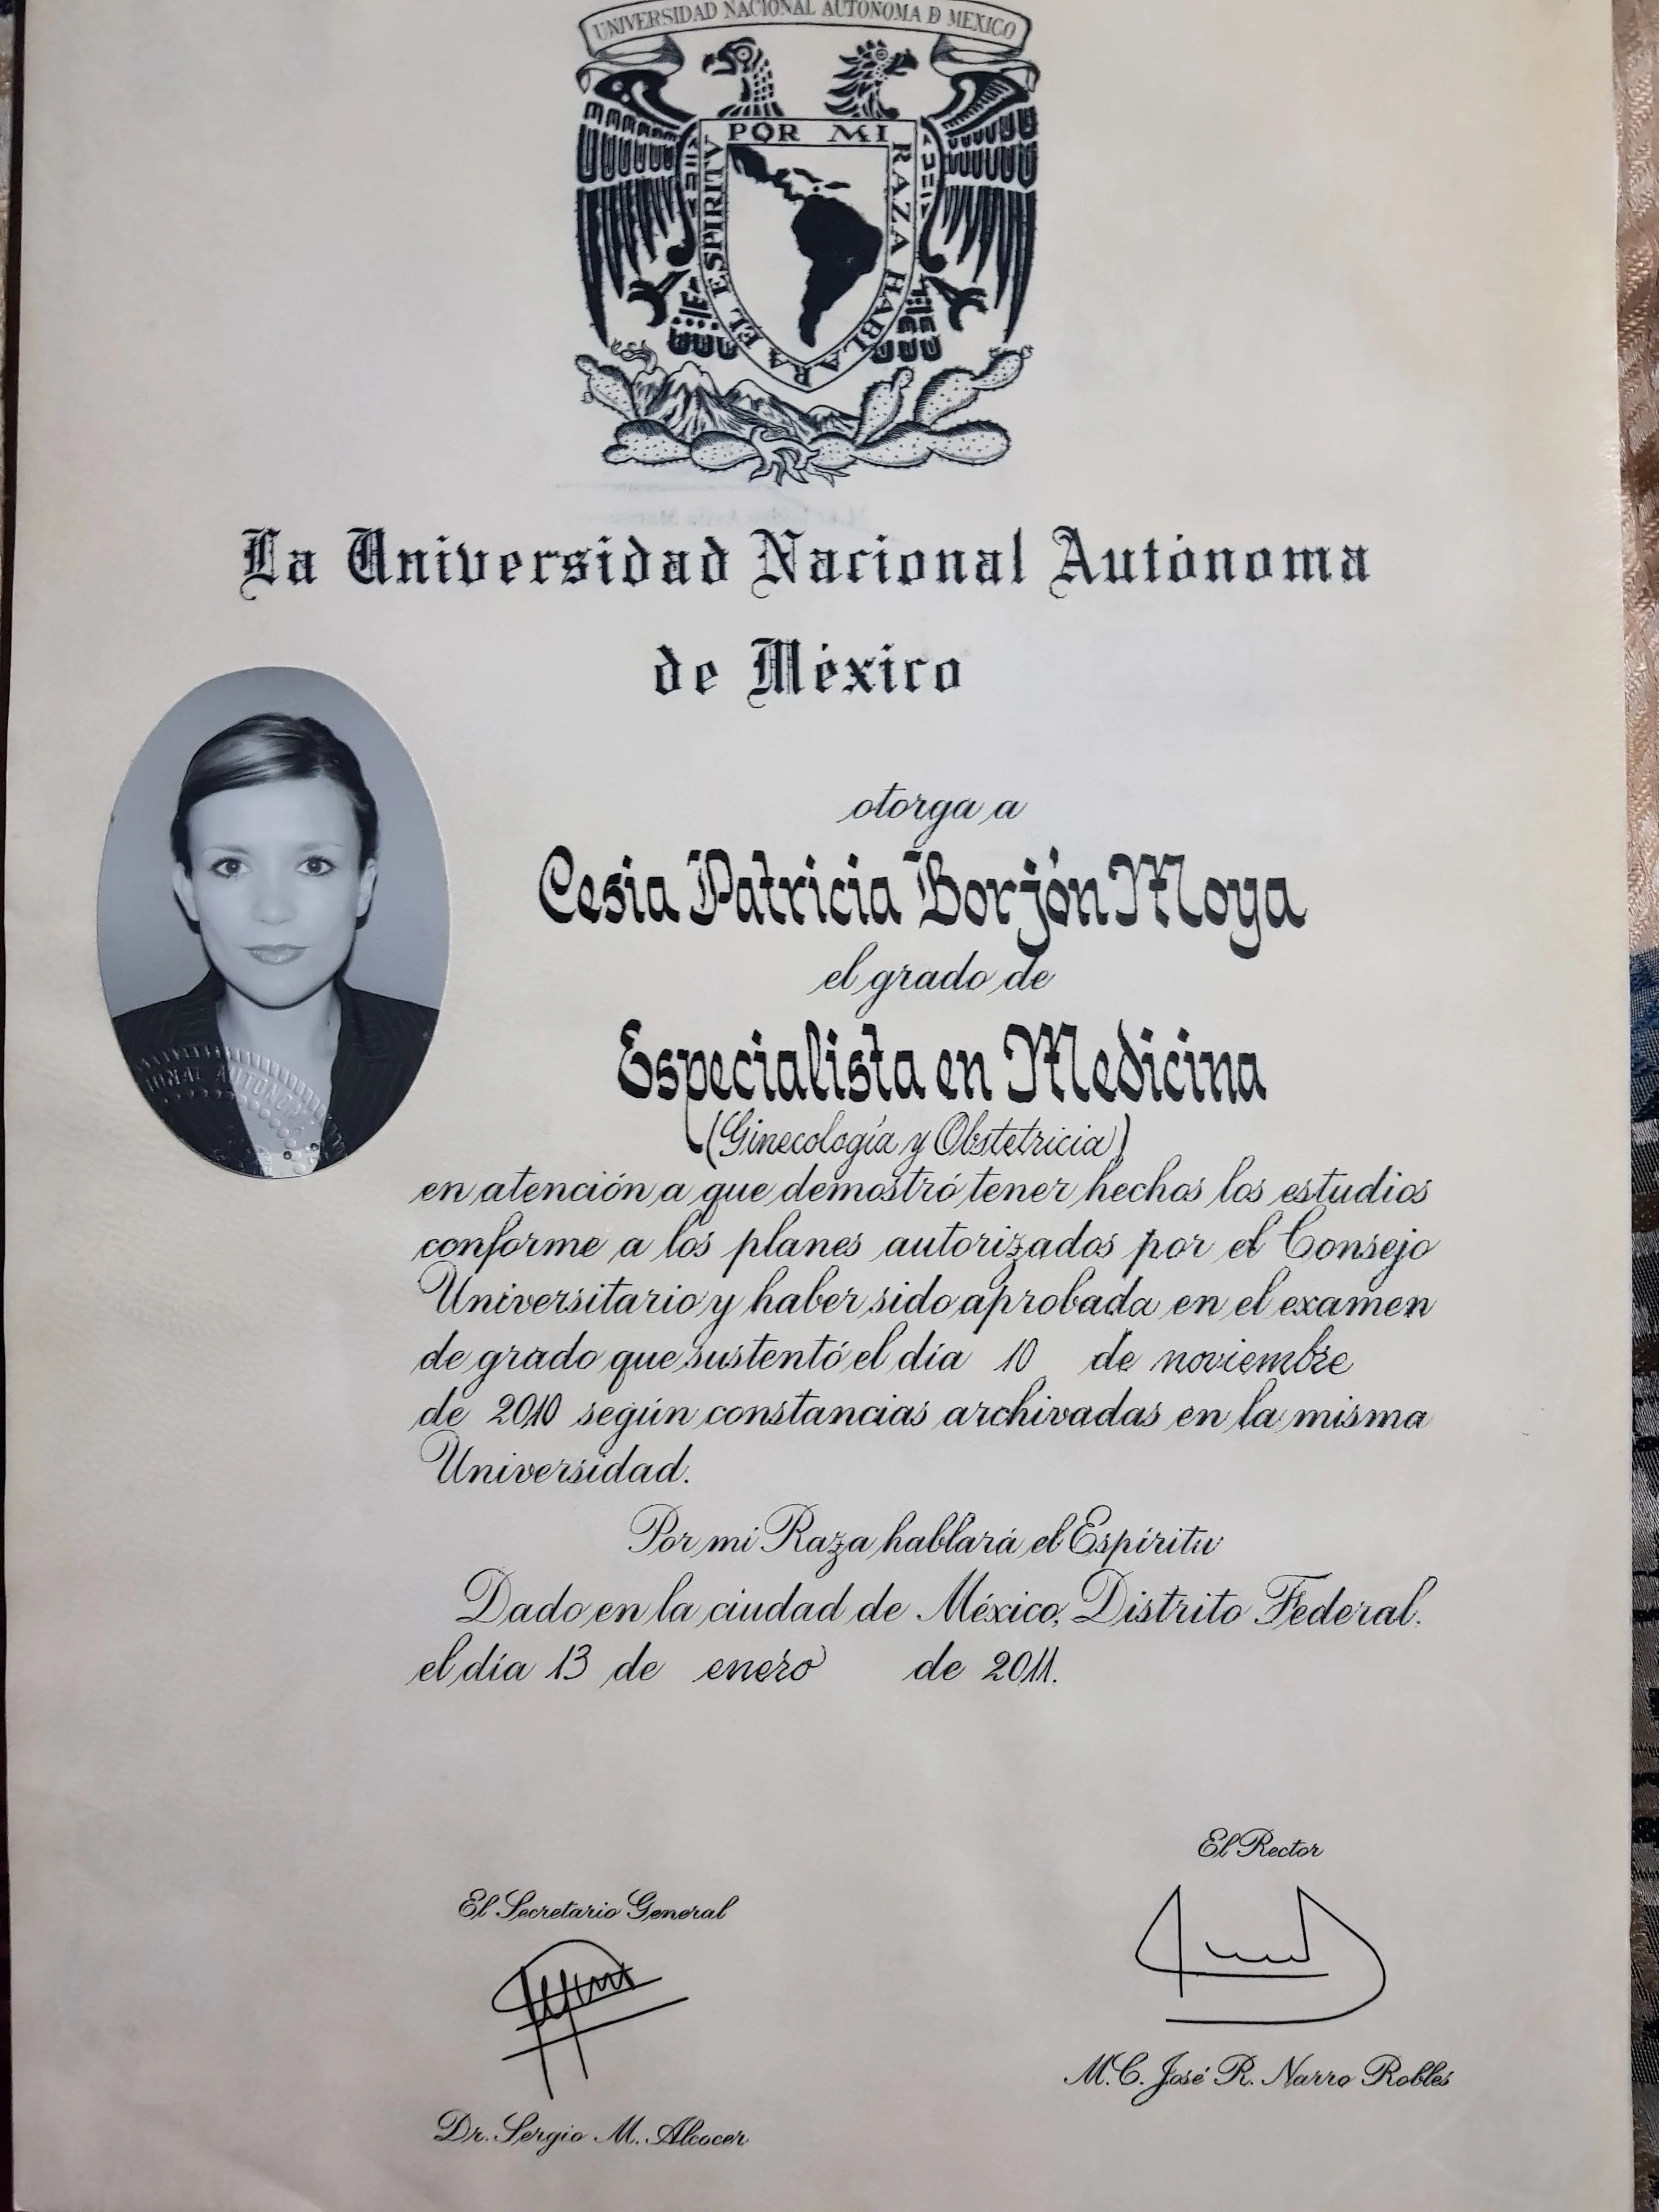 UNIVERSIDAD NACIONAL AUTONOMA D MEXICO
POR MI RAZA HABLARA EL ESPIRITV
La Universidad Nacional Autónoma
de México
otorga a
Cesia Patricia Borjón Moya
el grado de
Especialista en Medicina
(Ginecología y Obstetricia)
en atención a que demostró tener hechos los estudios
conforme a los planes autorizados por el Consejo
Universitario y haber sido aprobada en el examen
de grado que sustentó el día 10 de noviembre
de 2010 según constancias archivadas en la misma
Universidad.
Por mi Raza hablará el Espíritu
Dado en la ciudad de México, Distrito Federal,
el día 13 de enero de 2011.
El Rector
El Secretario General
M.C. José R. Narro Robles
Dr. Sergio M. Alcocer